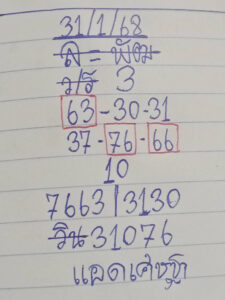 31/1/68
3
63-30-31
37-76-66
10
7663|3130
วิน 31076
แอดเศรษฐี